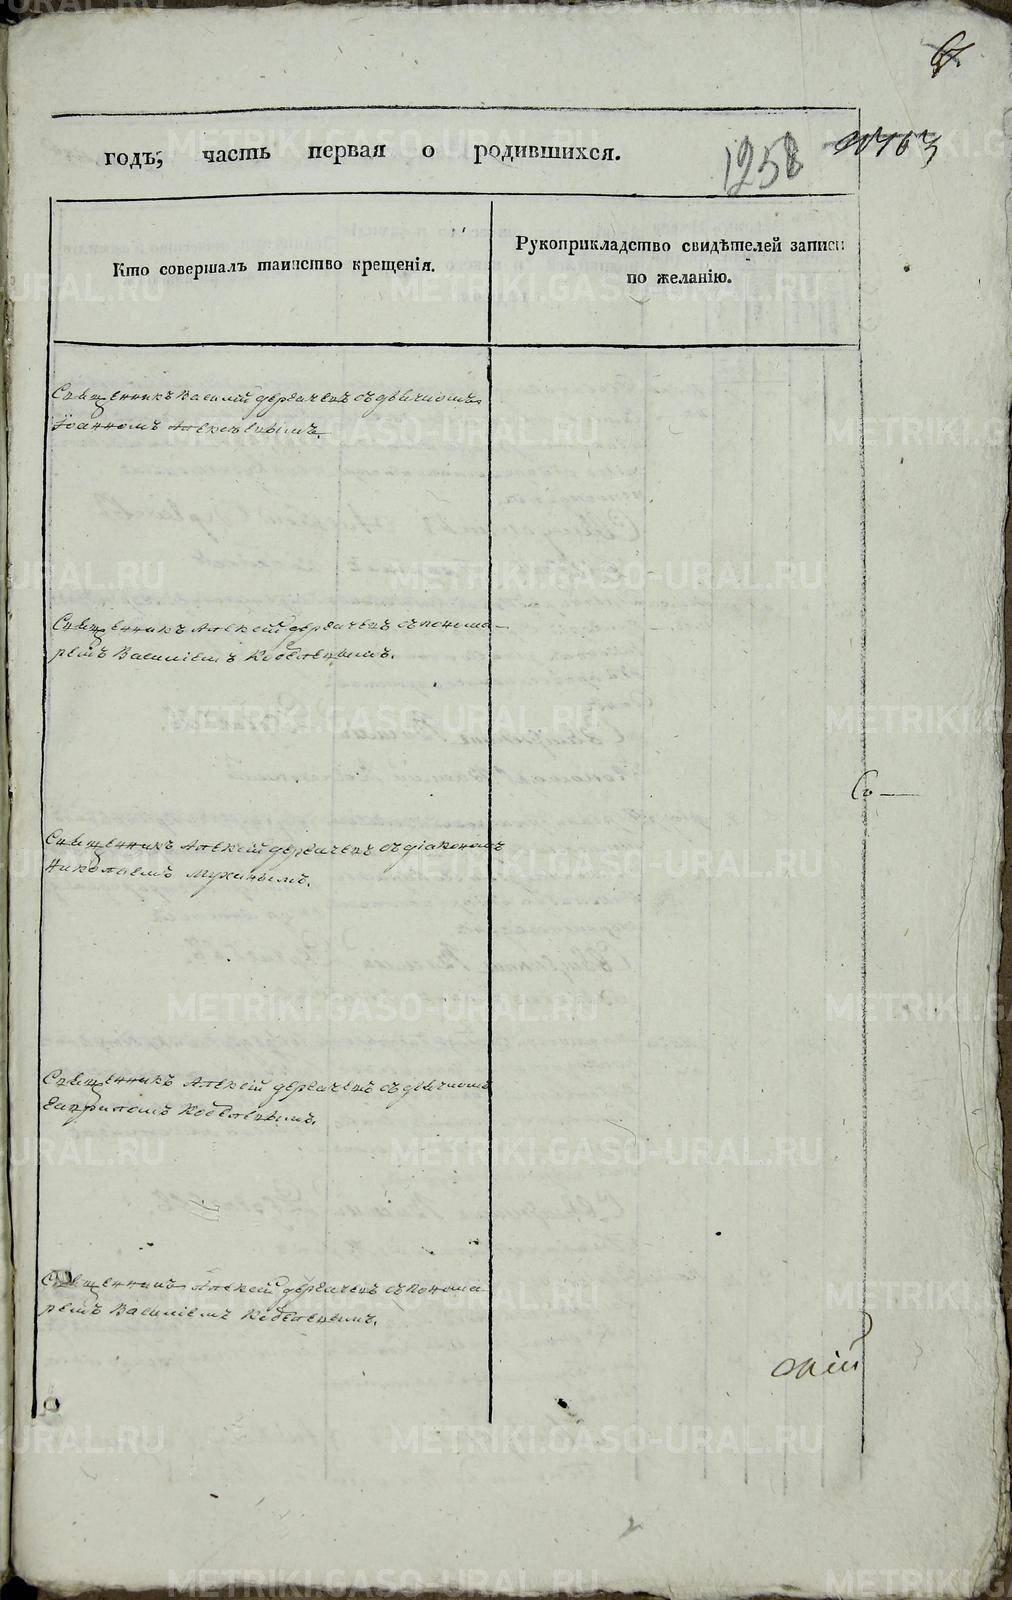 6.
годъ, часть первая о родившихся.
1258
Кто совершалъ таинство крещенія.
Рукоприкладство свидѣтелей записи
по желанію.
Священникъ Василій Дергачевъ съ дьячкомъ
Іоанномъ Алексѣевымъ.
Священникъ Алексій Дергачевъ съ понома-
ремъ Василіемъ Кобелевымъ.
Со—
Священникъ Алексій Дергачевъ съ діакономъ
Николаемъ Мухинымъ.
Священникъ Алексій Дергачевъ съ дьячкомъ
Гавриломъ Кобелевымъ.
Священникъ Алексій Дергачевъ съ понома
ремъ Василіемъ Кобелевымъ.
METRIKI.GASO-URAL.RU